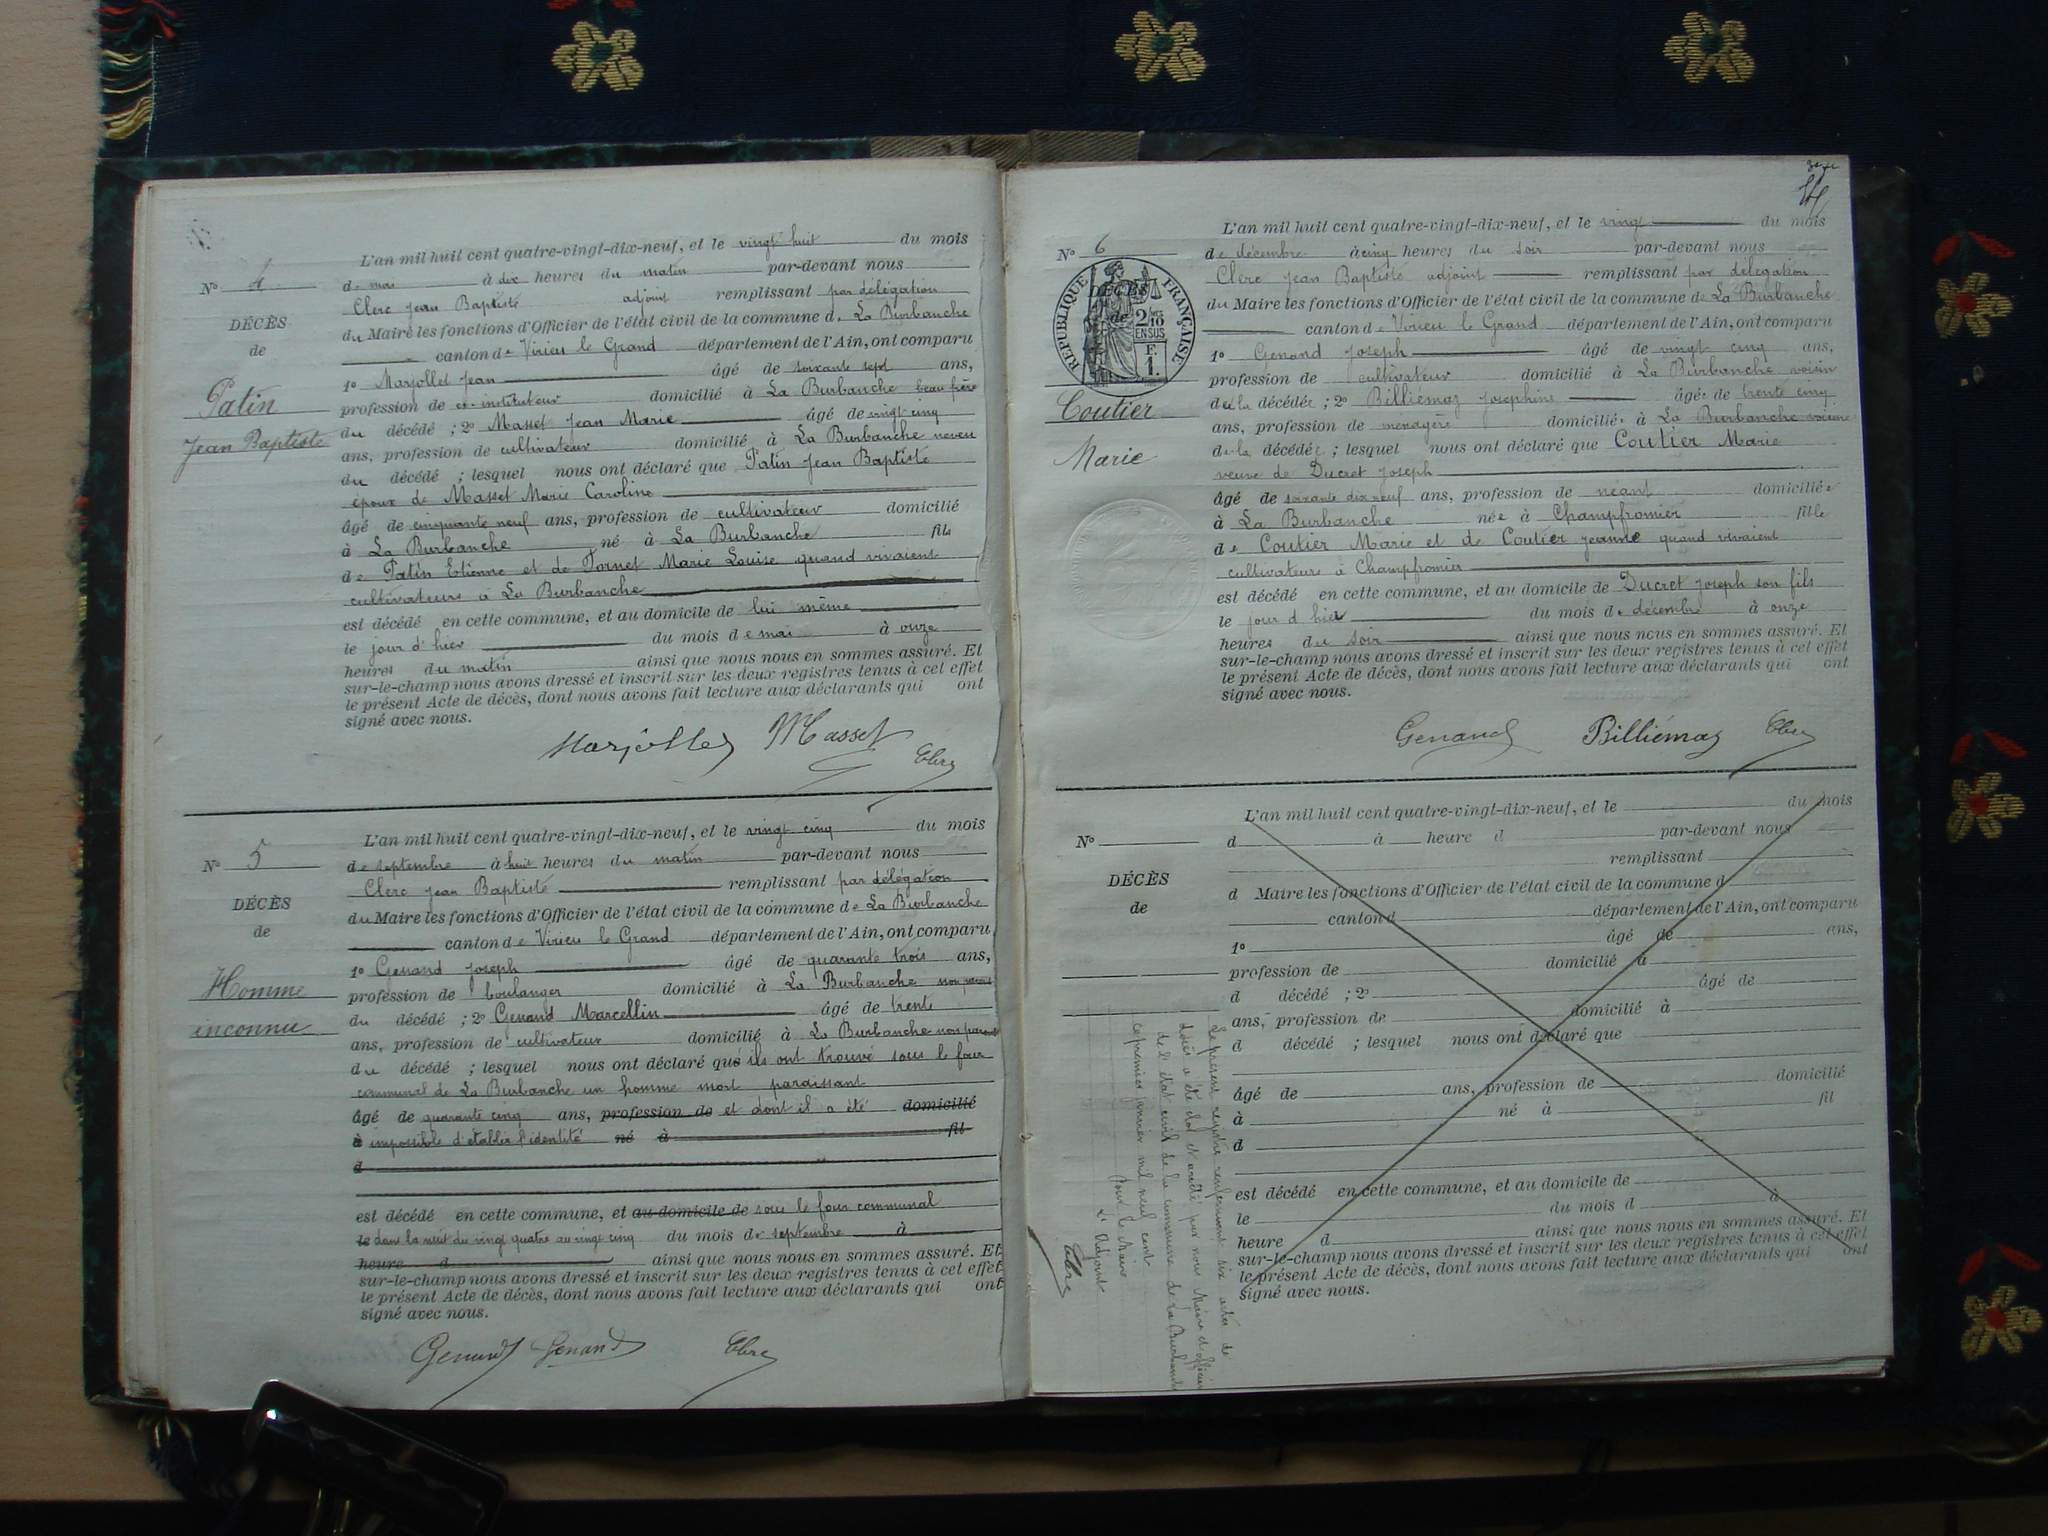 Nº 4
DÉCÈS
de
Patin
Jean Baptiste
L'an mil huit cent quatre-vingt-dix-neuf, et le vingt huit du mois
de mai à dix heures du matin par-devant nous
Clerc Jean Baptiste adjoint remplissant par délégation
du Maire les fonctions d'Officier de l'état civil de la commune de La Burbanche
canton de Virieu le Grand département de l'Ain, ont comparu
1º Marjollet Jean âgé de soixante sept ans,
profession de ex-instituteur domicilié à La Burbanche beau frère
du décédé ; 2º Masset Jean Marie âgé de vingt cinq
ans, profession de cultivateur domicilié à La Burbanche neveu
du décédé ; lesquel nous ont déclaré que Patin Jean Baptiste
époux de Masset Marie Caroline
âgé de cinquante neuf ans, profession de cultivateur domicilié
à La Burbanche né à La Burbanche fils
de Patin Etienne et de Tornet Marie Louise quand vivaient
cultivateurs à La Burbanche
est décédé en cette commune, et au domicile de lui même
le jour d'hier du mois de mai à onze
heures du matin ainsi que nous nous en sommes assuré. Et
sur-le-champ nous avons dressé et inscrit sur les deux registres tenus à cet effet
le présent Acte de décès, dont nous avons fait lecture aux déclarants qui ont
signé avec nous.
Marjollet Masset Clerc
Nº 5
DÉCÈS
de
Homme
inconnu
L'an mil huit cent quatre-vingt-dix-neuf, et le vingt cinq du mois
de septembre à huit heures du matin par-devant nous
Clerc Jean Baptiste remplissant par délégation
du Maire les fonctions d'Officier de l'état civil de la commune de La Burbanche
canton de Virieu le Grand département de l'Ain, ont comparu
1º Genand Joseph âgé de quarante trois ans,
profession de boulanger domicilié à La Burbanche non parent
du décédé ; 2º Genand Marcellin âgé de trente
ans, profession de cultivateur domicilié à La Burbanche non parent
du décédé ; lesquel nous ont déclaré qu'ils ont trouvé sous le four
communal de La Burbanche un homme mort paraissant
âgé de quarante cinq ans, profession de et dont il a été domicilié
à impossible d'établir l'identité né à fil
d
est décédé en cette commune, et au domicile de sous le four communal
le dans la nuit du vingt quatre au vingt cinq du mois de septembre à
heure d ainsi que nous nous en sommes assuré. Et
sur-le-champ nous avons dressé et inscrit sur les deux registres tenus à cet effet
le présent Acte de décès, dont nous avons fait lecture aux déclarants qui ont
signé avec nous.
Genand Genand Clerc
Nº 6
DÉCÈS
de
RÉPUBLIQUE FRANÇAISE
2/10 EN SUS
F. 1.
Coutier
Marie
L'an mil huit cent quatre-vingt-dix-neuf, et le vingt du mois
de décembre à cinq heures du soir par-devant nous
Clerc Jean Baptiste adjoint remplissant par délégation
du Maire les fonctions d'Officier de l'état civil de la commune de La Burbanche
canton de Virieu le Grand département de l'Ain, ont comparu
1º Genand Joseph âgé de vingt cinq ans,
profession de cultivateur domicilié à La Burbanche voisin
de la décédée ; 2º Billiémaz Josephine âgée de trente cinq
ans, profession de ménagère domiciliée à La Burbanche voisine
de la décédée ; lesquel nous ont déclaré que Coutier Marie
veuve de Ducret Joseph
âgé de soixante dix neuf ans, profession de néant domiciliée
à La Burbanche née à Champfromier fille
de Coutier Marie et de Coutier Jeanne quand vivaient
cultivateurs à Champfromier
est décédé en cette commune, et au domicile de Ducret Joseph son fils
le jour d'hier du mois de décembre à onze
heures du soir ainsi que nous nous en sommes assuré. Et
sur-le-champ nous avons dressé et inscrit sur les deux registres tenus à cet effet
le présent Acte de décès, dont nous avons fait lecture aux déclarants qui ont
signé avec nous.
Genand Billiémaz Clerc
Nº
DÉCÈS
de
L'an mil huit cent quatre-vingt-dix-neuf, et le du mois
d à heure d par-devant nous
remplissant
d Maire les fonctions d'Officier de l'état civil de la commune d
canton d département de l'Ain, ont comparu
1º âgé de ans,
profession de domicilié à
d décédé ; 2º âgé de
ans, profession de domicilié à
d décédé ; lesquel nous ont déclaré que
âgé de ans, profession de domicilié
à né à fil
d
est décédé en cette commune, et au domicile de
le du mois d à
heure d ainsi que nous nous en sommes assuré. Et
sur-le-champ nous avons dressé et inscrit sur les deux registres tenus à cet effet
le présent Acte de décès, dont nous avons fait lecture aux déclarants qui ont
signé avec nous.
Le présent registre renfermant six actes de
décès a été clos et arrêté par nous Maire et officier
de l'état civil de la commune de La Burbanche
ce premier janvier mil neuf cent
Pour le Maire
L'Adjoint
Clerc